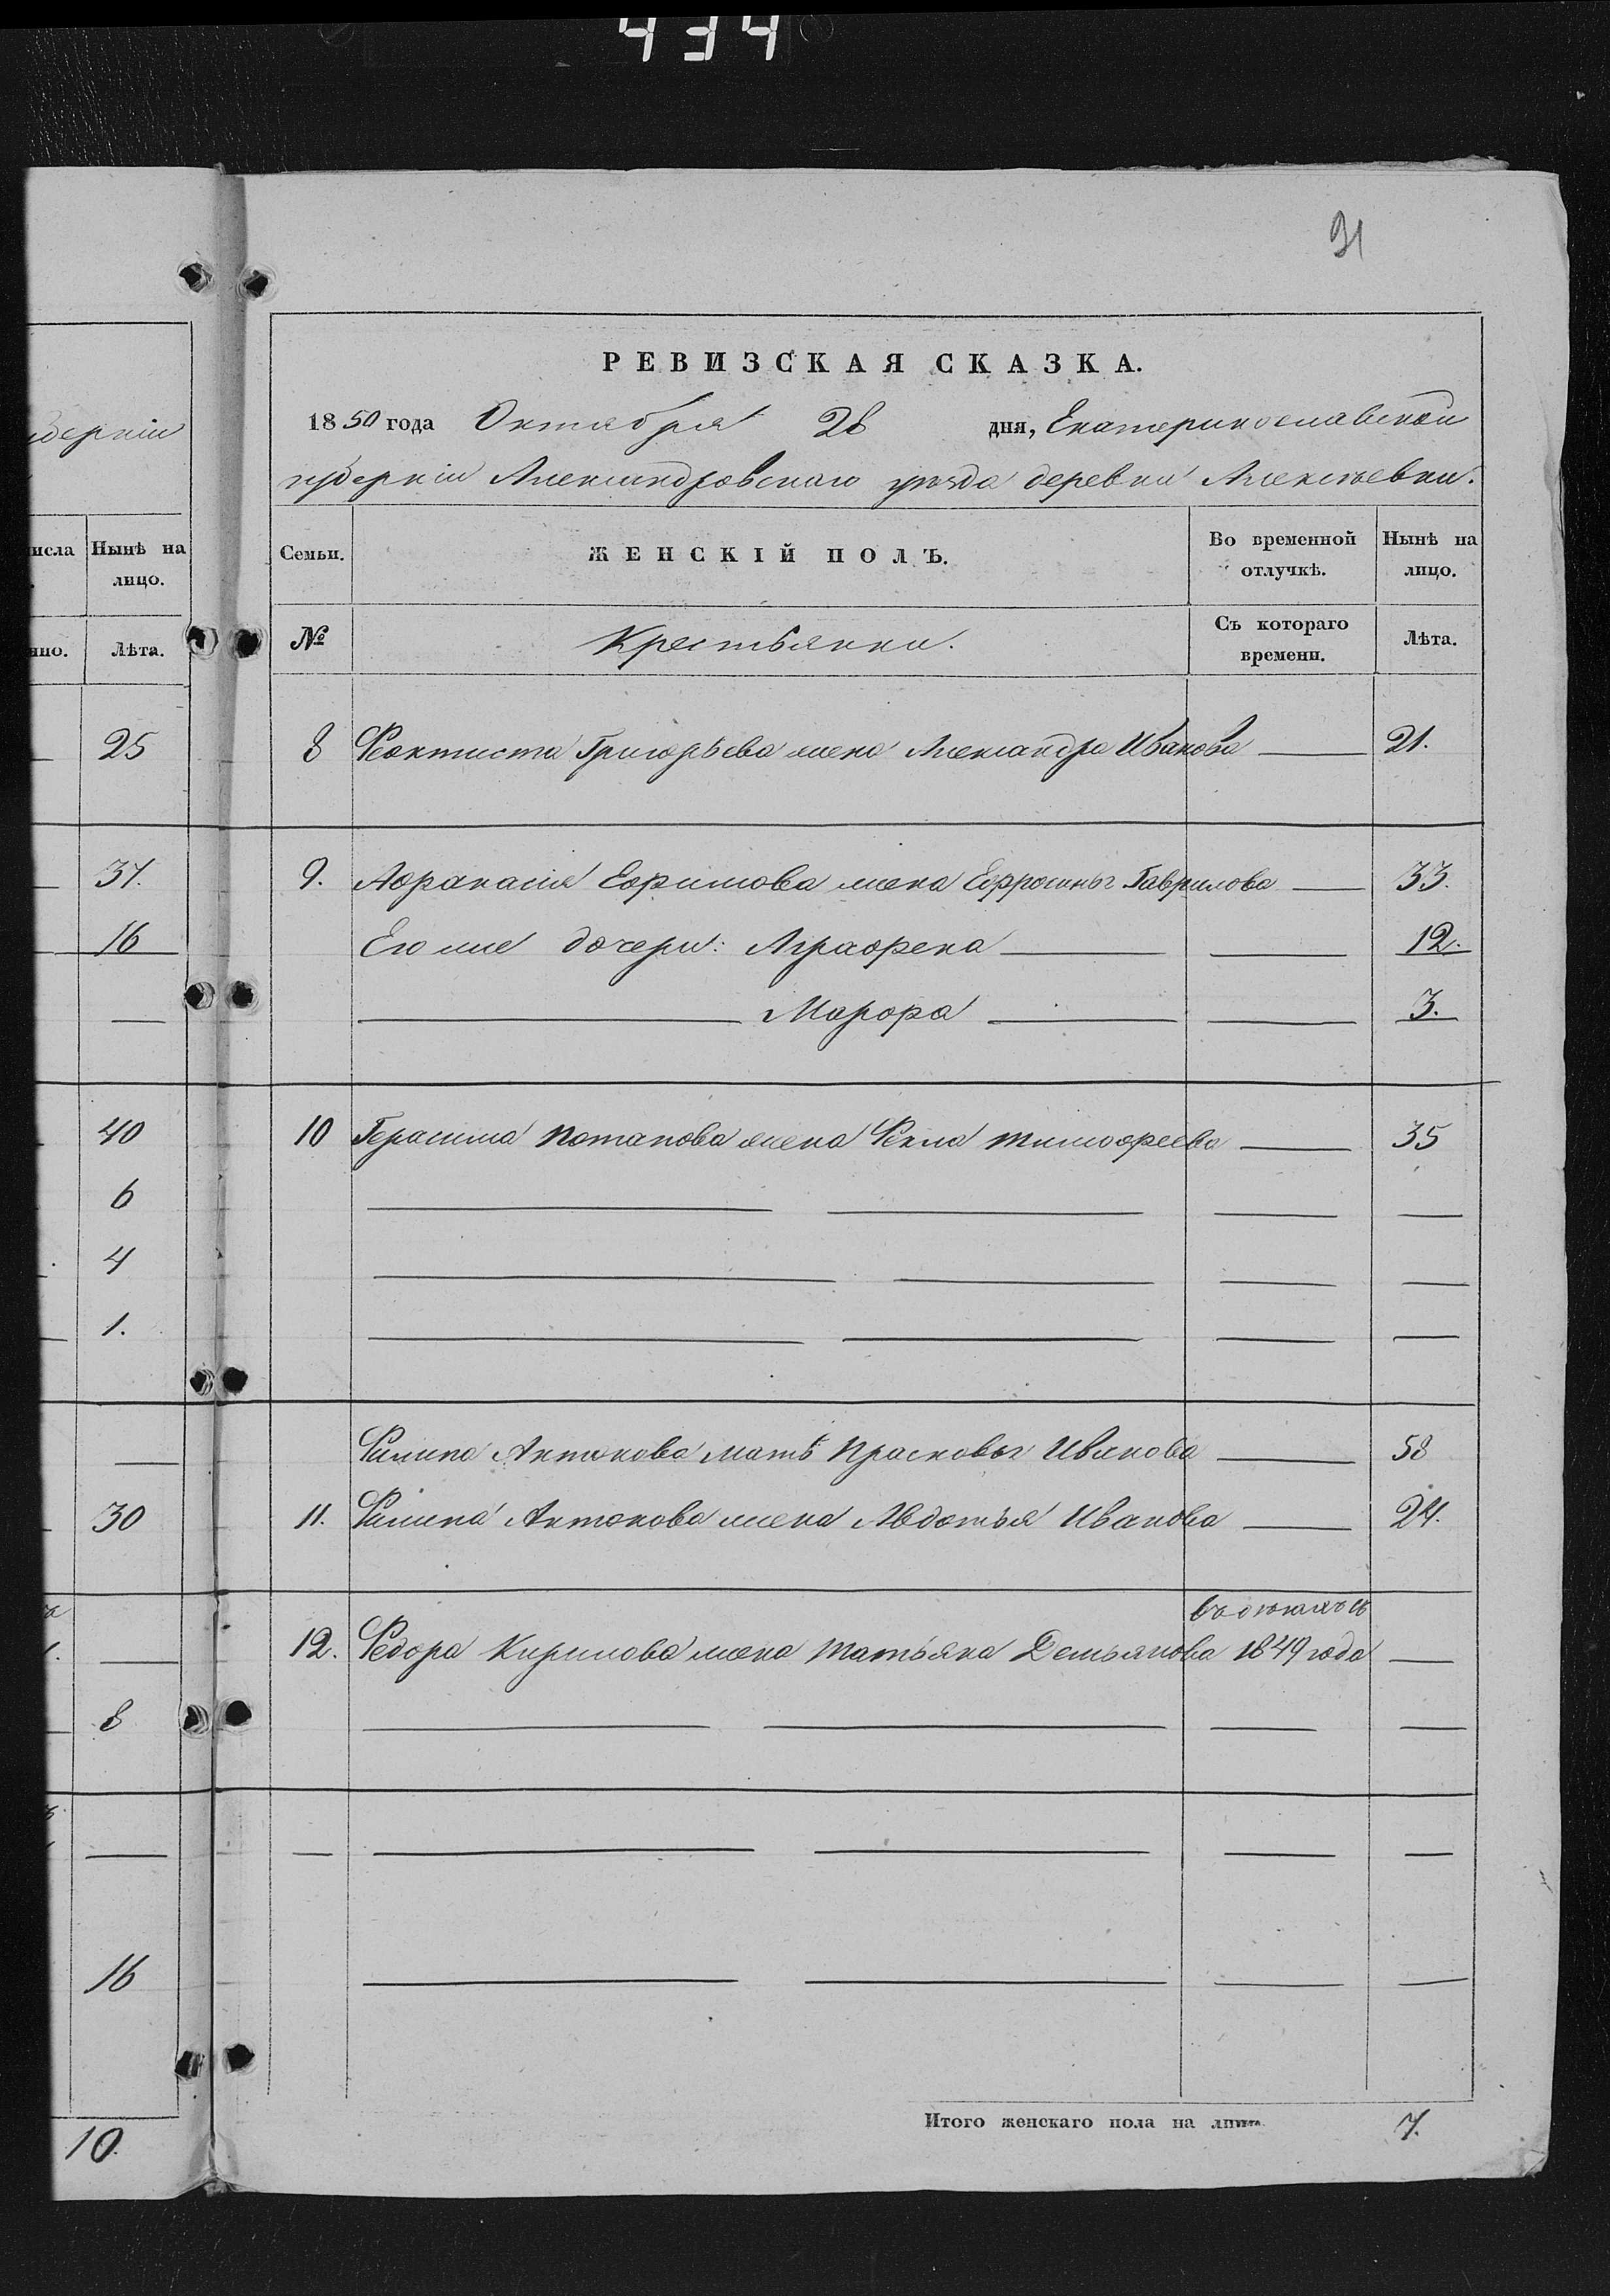 434
91
РЕВИЗСКАЯ СКАЗКА.
1850 года Октября 28 дня, Екатеринославской
губерніи Александровскаго уѣзда деревни Алексѣевки.
губерніи
Нынѣ на лицо.
Лѣта.
25
37.
16
40
6
4
1.
30
8
16
10.
Семьи. ЖЕНСКІЙ ПОЛЪ. Во временной отлучкѣ. Нынѣ на лицо.
№ Крестьянки. Съ котораго времени. Лѣта.
8 Феоктиста Григорьева жена Александра Иванова — 21.
9. Афанасія Ефимова жена Ефросинья Гаврилова — 33.
Его же дочери: Аграфена — — 12.
— Марфа — — 3.
10 Герасима Потапова жена Фекла Тимофеева — 35
Филипа Антонова мать Прасковья Иванова — 58
11. Филипа Антонова жена Авдотья Иванова — 24.
въ бѣгахъ съ
12. Федора Кирилова жена Татьяна Демьянова 1849 года —
Итого женскаго пола на лицо 7.